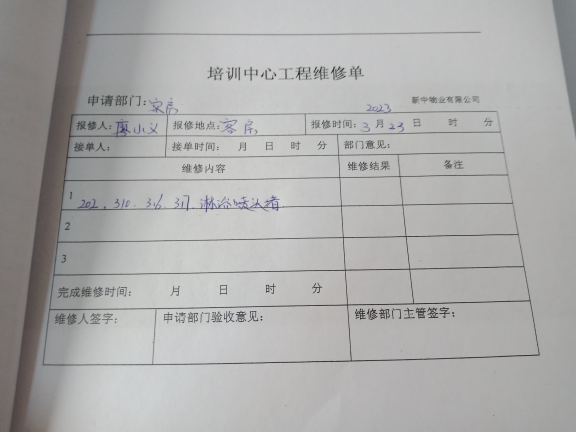 培训中心工程维修单
申请部门：客房
2023
新中物业有限公司
报修人：廖小义 报修地点：客房 报修时间：3月23日 时 分
接单人： 接单时间： 月 日 时 分 部门意见：
维修内容 维修结果 备注
1 202、310、316、317、淋浴喷头堵
2
3
完成维修时间： 月 日 时 分
维修人签字： 申请部门验收意见： 维修部门主管签字：